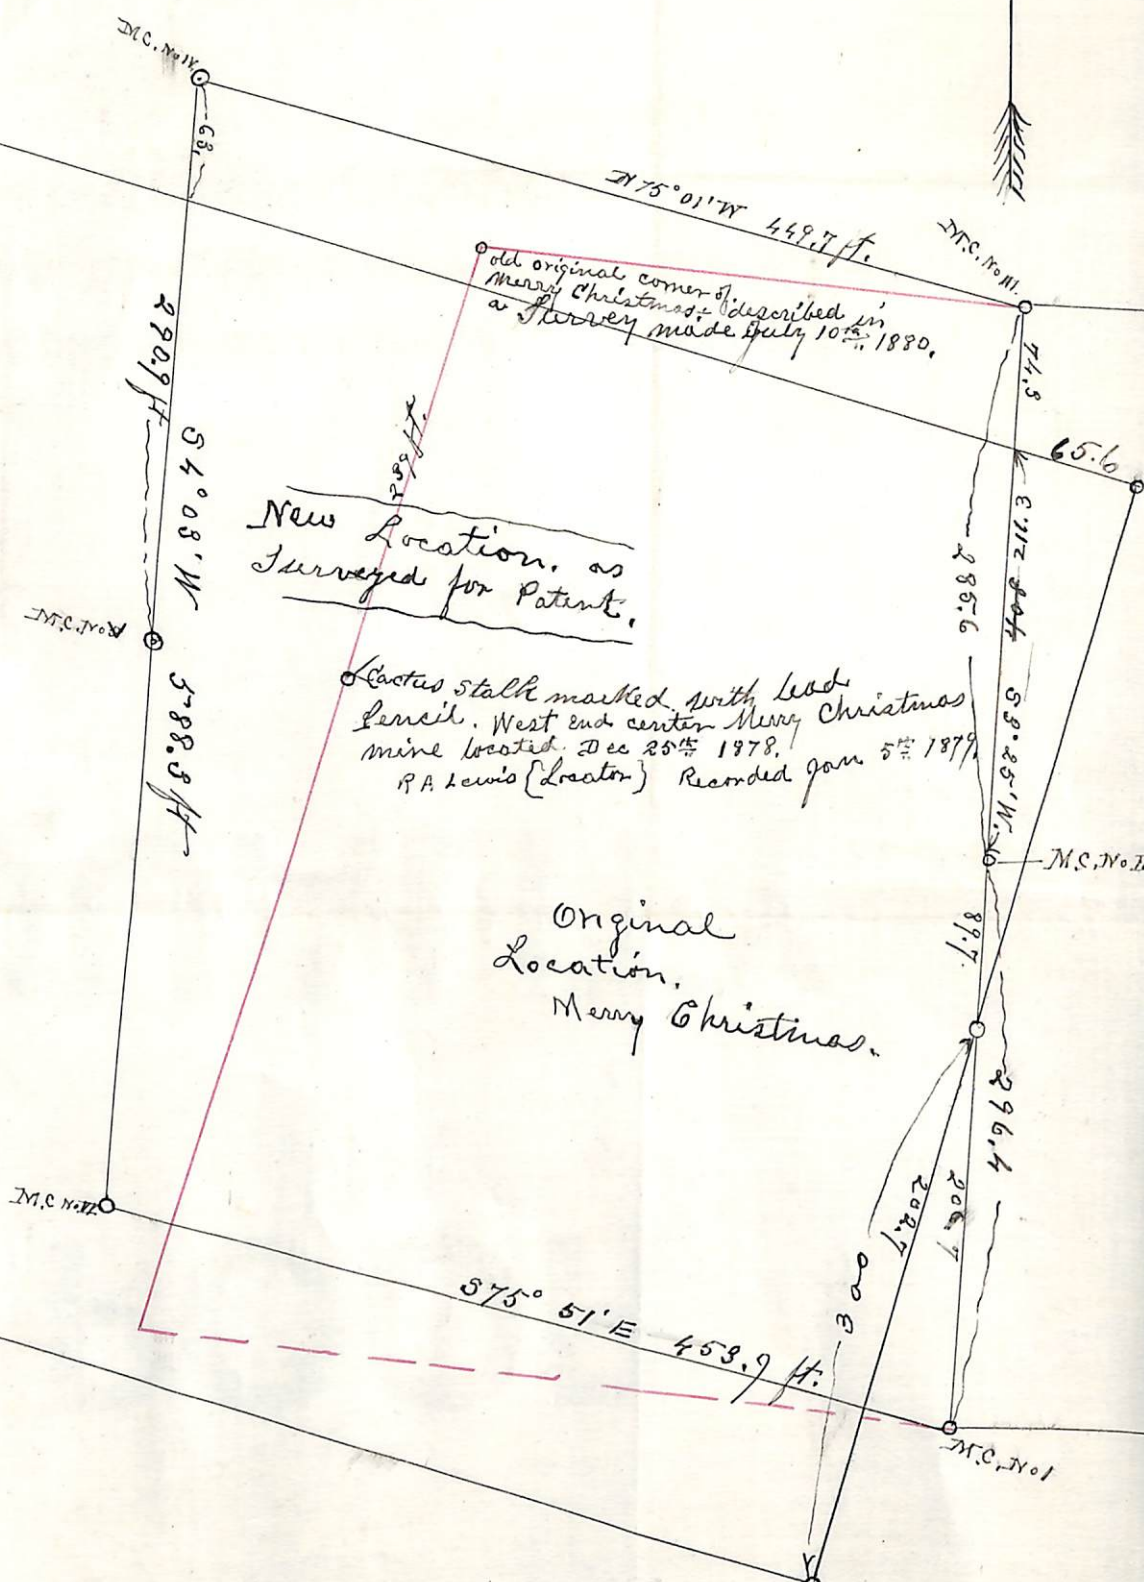 M.C. No IV.
63.
N 75° 01' W 449.7 ft.
M.C. No III.
old original corner of
Merry Christmas: described in
a Survey made July 10th 1880.
74.3
65.6
290.9 ft
S 4° 03' W
588.3 ft
239 ft.
New Location. as
Surveyed for Patent.
285.6
211.3
S 3° 25' W.
M.C. No V
Cactus stalk marked with lead
Pencil. West end center Merry Christmas
mine located Dec 25th 1878.
R A Lewis {Locator} Recorded Jan 5th 1879.
M.C. No II
89.7
Original
Location.
Merry Christmas.
296.4
206.7
202.7
300
M.C No VI
S 75° 51' E 453.9 ft.
M.C. No 1